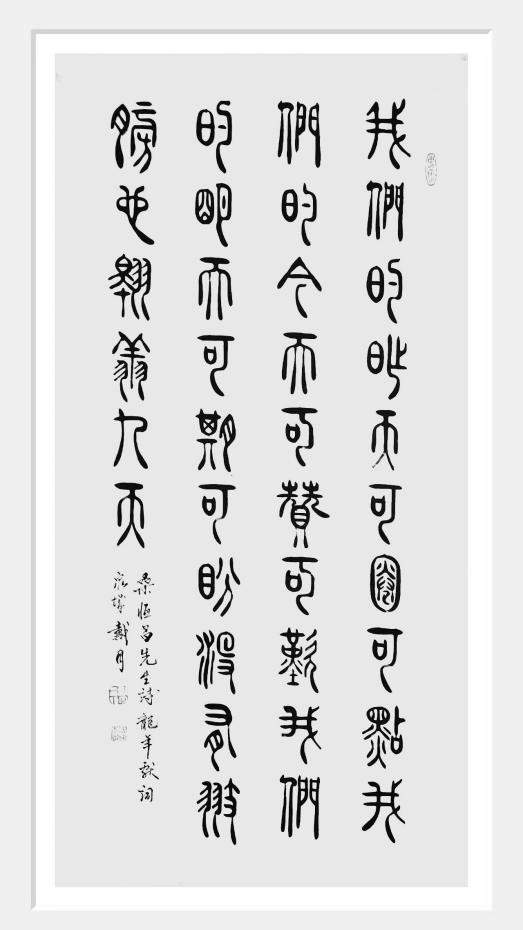 我們的昨天可圈可點我
們的今天可贊可歎我們
的明天可期可盼沒有翅
膀也翱翔九天
桑恒昌先生詩龍年獻詞
泉城戴月